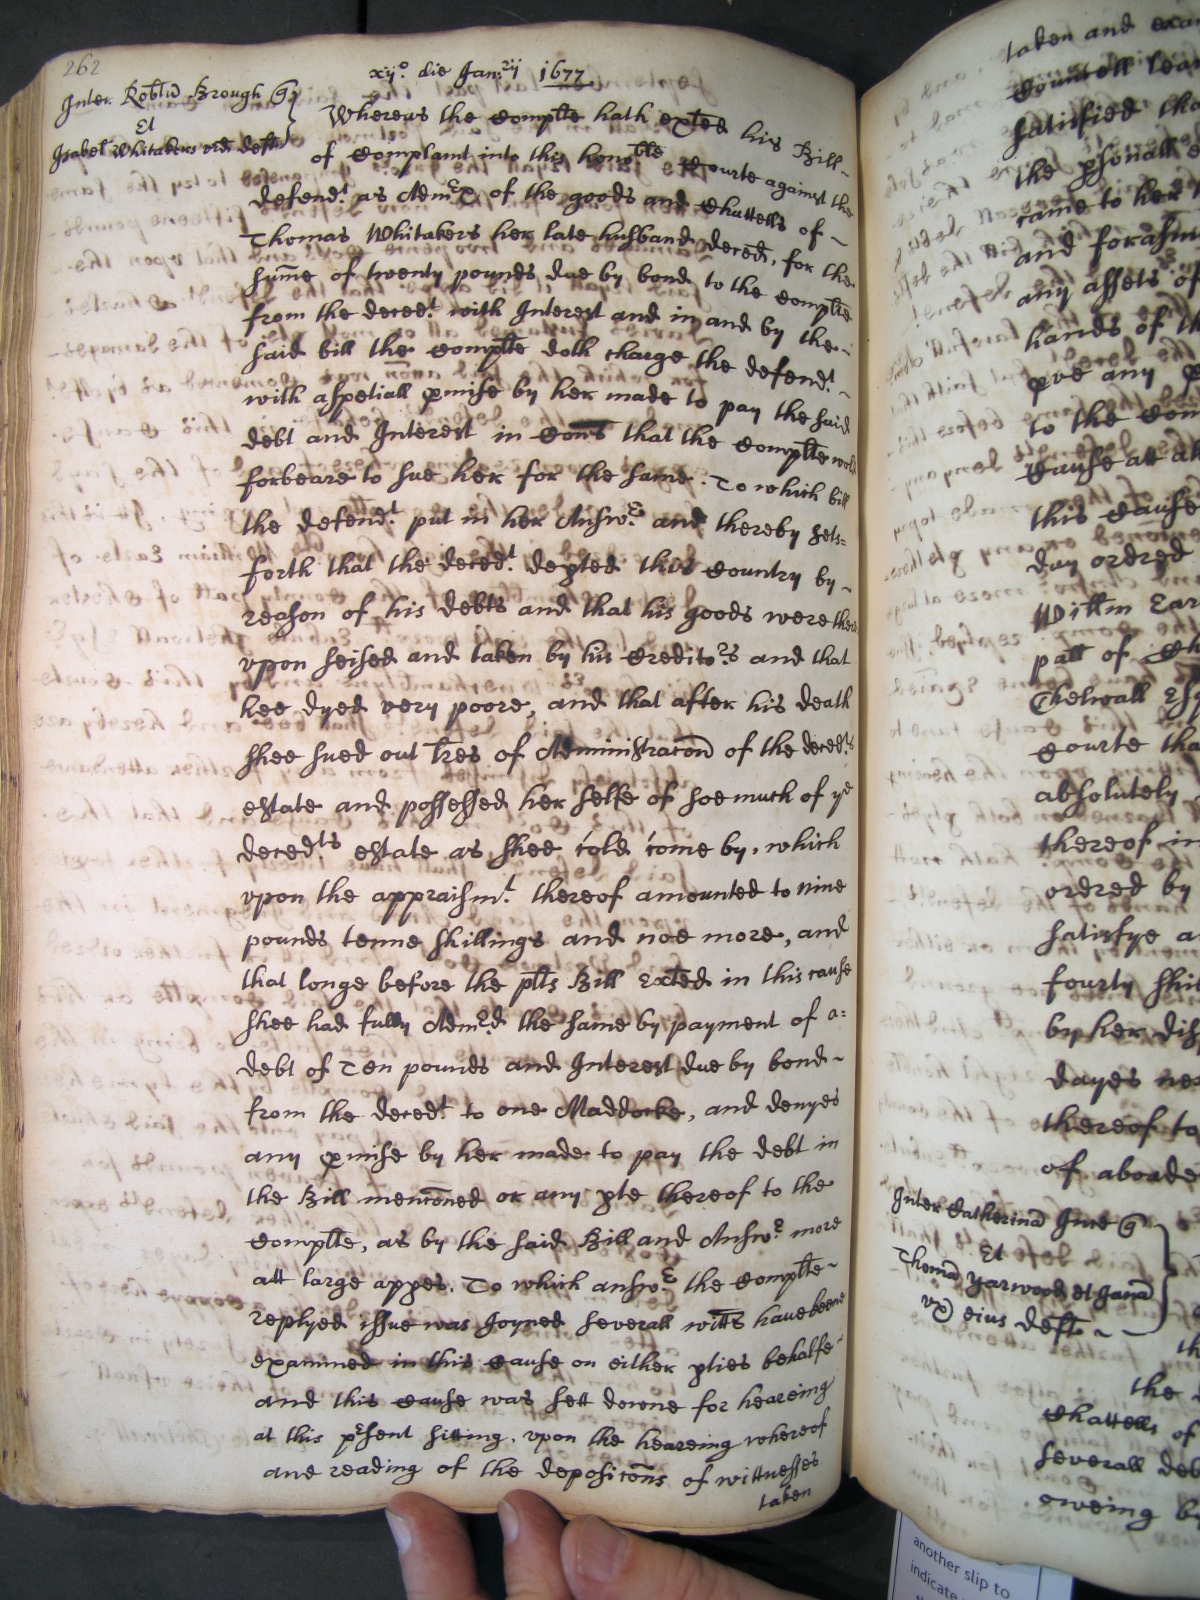 262
xijo. die Janrij 1677
Inter Robtū Brough Quer
Et
Isabel Whitakers vid deft
Whereas the Complte hath exted his Bill
of Complaint into this honoble Courte against the
defendt. as Admrx of the goods and Chattells of
Thomas Whitakers her late husband deced, for the
sum̄e of twenty pounds due by bond to the complte
from the decedt. with Interest and in and by the
said bill the Complte doth charge the defendt.
with a speciall pmise by her made to pay the said
debt and Interest in Cons that the Complte wold
forbeare to sue her for the same. To which bill
the defendt. put in her Answr. and thereby sets=
forth that the decedt. depted this Country by
reason of his debts and that his goods were there
vpon seised and taken by his Creditors and that
hee dyed very poore, and that after his death
shee sued out lr̄es of Administracon̄ of the decedts
estate and possessed her selfe of soe much of ye
decedts estate as shee cold come by, which
vpon the appraismt. thereof amounted to nine
pounds tenne shillings and noe more, and
that longe before the plts Bill exted in this cause
shee had fully Admrd the same by payment of a=
debt of Ten pounds and Interest due by bond
from the decedt. to one Maddocke, and denyes
any pmise by her made to pay the debt in
the Bill mencōned or any pte thereof to the
Complte, as by the said Bill and Answr. more
att large appes. To which answr. the Complte
replyed issue was Joyned severall witts have beene
examined in this Cause on either pties behalfe
and this Cause was sett downe for heareing
at this prsent sitting, vpon the heareing whereof
and reading of the deposicōns of wittnesses
taken
taken and exa
Councell lear
satisfied tha
the psonall e
came to her h
and forasm
any assets of
hands of th
pve any p
to the Com
Cause att
this Cause
day ordred
Willm Ear
patt of Ch
Thelwall Esq
Courte tha
absolutely
thereof in
ordred by
satisfye a
fourty shil
by her dis
dayes nex
thereof to
of aboade
Inter Catherinā Jnce Quer
Et
Thomā Yarwood et Janā
vx eius deft
th
the
Chattells of
severall deb
oweing by
another slip to
indicate